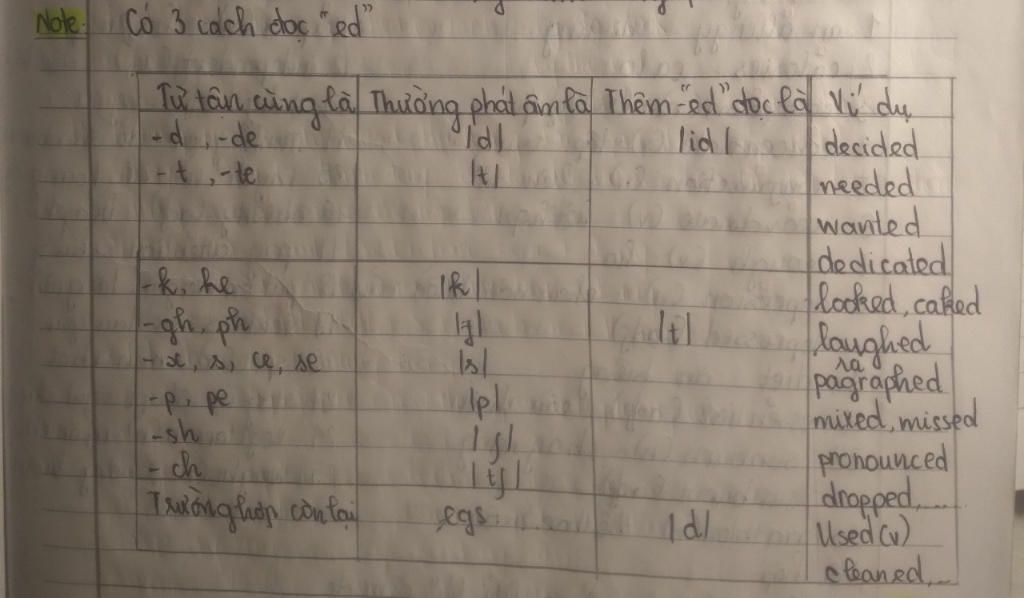 Note: Có 3 cách đọc "ed"
Từ tận cùng là Thường phát âm là Thêm "ed" đọc là Ví dụ
-d, -de /d/ /id/ decided
-t, -te /t/ needed
wanted
dedicated
-k, ke /k/ looked, caked
-gh, ph /f/ /t/ laughed
ra
-x, s, ce, se /s/ pagraphed
-p, pe /p/ mixed, missed
-sh /ʃ/ pronounced
-ch /tʃ/ dropped,...
Trường hợp còn lại egs /d/ Used (v)
cleaned,...